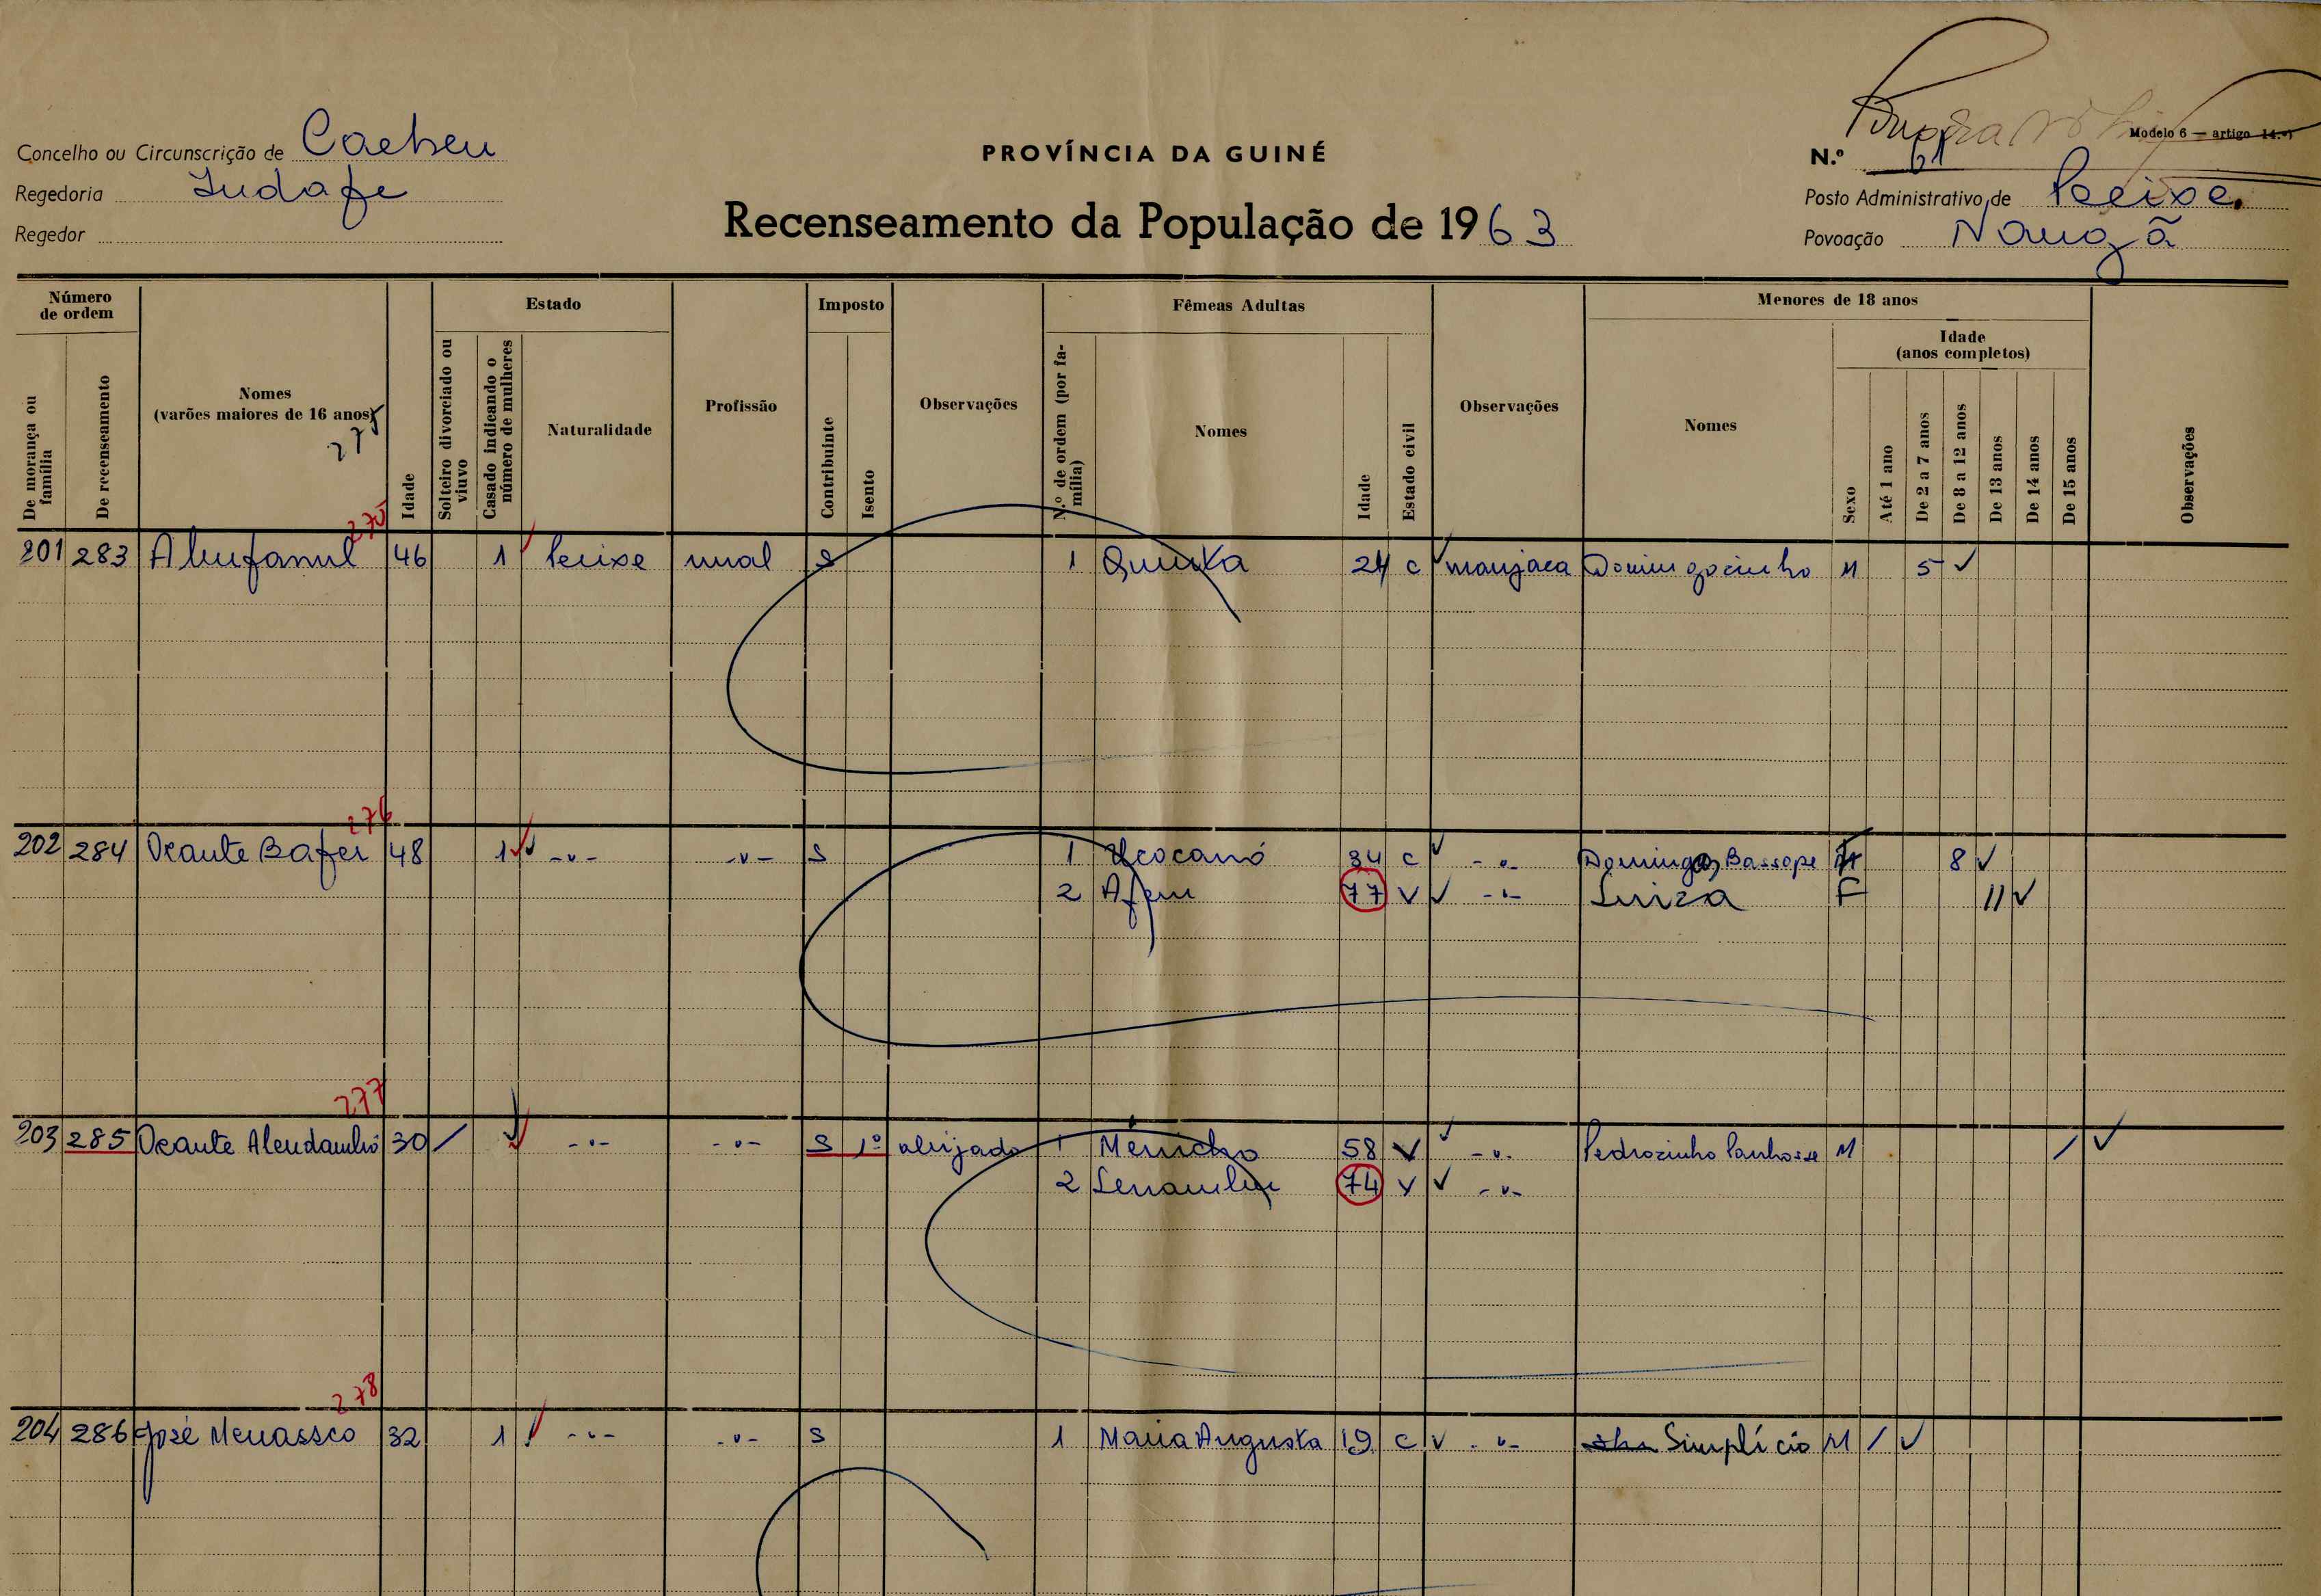 Modelo 6 — artigo 14.º)
Concelho ou Circunscrição de Cacheu
PROVÍNCIA DA GUINÉ
N.º 61
Regedoria
Posto Administrativo de
Recenseamento da População de 1963
Regedor
Povoação
Número de ordem
Estado
Imposto
Fêmeas Adultas
Menores de 18 anos
Idade (anos completos)
De morança ou família
De recenseamento
Nomes (varões maiores de 16 anos)
275
Idade
Solteiro divorciado ou viuvo
Casado indicando o número de mulheres
Naturalidade
Profissão
Contribuinte
Isento
Observações
N.º de ordem (por família)
Nomes
Idade
Estado civil
Observações
Nomes
Sexo
Até 1 ano
De 2 a 7 anos
De 8 a 12 anos
De 13 anos
De 14 anos
De 15 anos
Observações
275
201 283 46 1 rural S 1 24 c manjaca Domingocinho M 5
276
202 284 Ocante Bafer 48 1 -"- -"- S 1 34 c -"- Domingos Bassope 8
2 77 V -"- Luiza F 11
277
203 285 Ocante 30 / -"- -"- S 1º 1 58 V -"- Pedrozinho M /
2 74 V -"-
278
204 286 José 32 1 -"- -"- S 1 Maria Augusta 19 c -"- Simplício M /